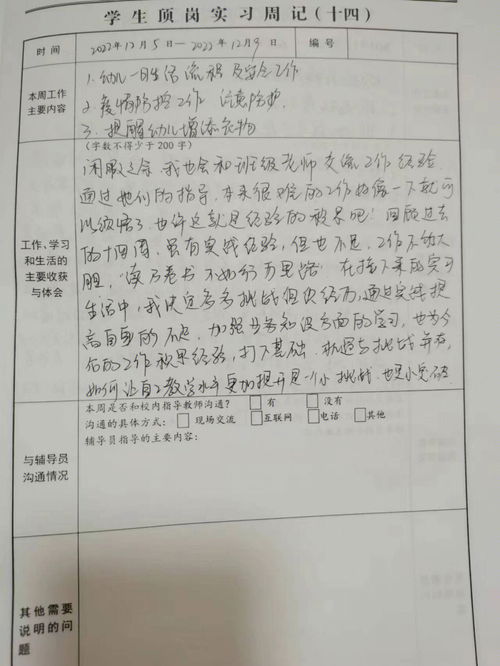 学生顶岗实习周记(十四)
时间 2022年12月5日—2022年12月9日 编号
本周工作
主要内容
1.幼儿一日生活流程及安全工作
2.疫情防控工作 注意防护
3.提醒幼儿增添衣物
(字数不得少于200字)
工作、学习
和生活的
主要收获
与体会
闲暇之余,我也会和班级老师交流工作经验
通过她们的指导,本来很难的工作好像一下就可
以领悟了,也许这就是经验的积累吧!回顾过去
的十四周,虽有实践经验,但也不足,工作不够大
胆,“读万卷书不如行万里路”在接下来的实习
生活中,我决定多多挑战但 ,通过实践提
高自身的不足,加强业务知识方面的学习,也为今
后的工作积累经验,打下基础.机遇与挑战并存,
如何让自己教学水平更加提升是一个小挑战,也是小突破
与辅导员
沟通情况
本周是否和校内指导教师沟通? 有 没有
沟通的具体方式: 现场交流 互联网 电话 其他
辅导员指导的主要内容:
其他需要
说明的问
题